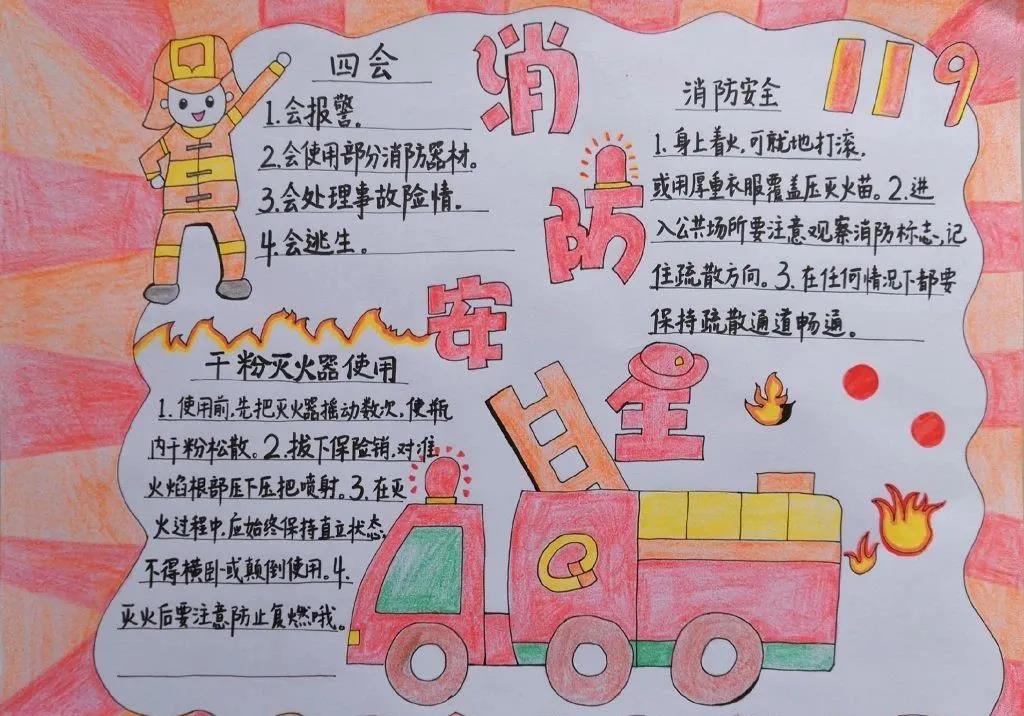 消
防
安
全
119
四会
1.会报警。
2.会使用部分消防器材。
3.会处理事故险情。
4.会逃生。
消防安全
1.身上着火,可就地打滚,
或用厚重衣服覆盖压灭火苗。2.进
入公共场所要注意观察消防标志,记
住疏散方向。3.在任何情况下都要
保持疏散通道畅通。
干粉灭火器使用
1.使用前,先把灭火器摇动数次,使瓶
内干粉松散。2.拔下保险销,对准
火焰根部压下压把喷射。3.在灭
火过程中,应始终保持直立状态,
不得横卧或颠倒使用。4.
灭火后要注意防止复燃哦。